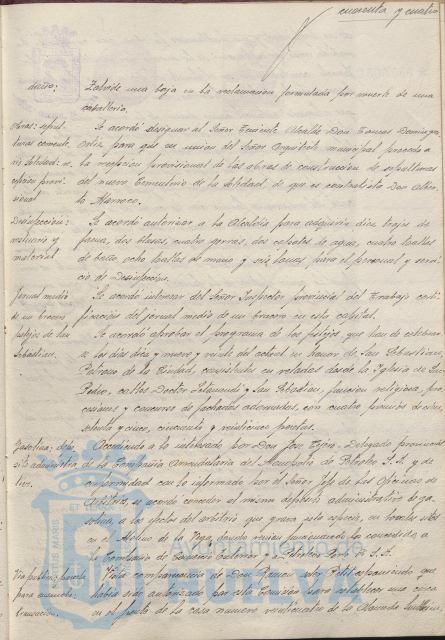 cuarenta y cuatro
daño: Zabide una baja en la reclamación formulada por muerte de una
caballería.
Obras: sepul- Se acordó designar al Señor Teniente Alcalde Don Tomás Domínguez
turas cemente- Ortiz para que en unión del Señor Arquitecto municipal proceda a
rio Soledad: re- la recepción provisional de las obras de construcción de sepulturas
cepción provi- del nuevo Cementerio de la Soledad, de que es contratista Don
sional
Desinfección: Se acordó autorizar a la Alcaldía para adquirir diez trajes de
vestuario y faena, dos blusas, cuatro gorras, dos calzados de agua, cuatro
material ocho de mano y seis para el personal y servi-
cio de Desinfección.
Jornal medio Se acordó interesar del Señor Inspector provincial del Trabajo certi-
de un bracero ficación del jornal medio de un bracero en esta capital.
festejos de San Se acordó aprobar el programa de los festejos que han de celebrar-
Sebastián. se los días diez y nueve y veinte del actual en honor de San Sebastián,
Patrono de la Ciudad, consistentes en veladas desde la Iglesia de San
Pedro, calles Doctor y San Sebastián, función religiosa, pro-
cesiones y concurso de fachadas adornadas, con cuatro premios de cien,
setenta y cinco, cincuenta y veinticinco pesetas.
Gasolina: depó- Accediendo a lo interesado por Don José Delegado provincial
sito administra- de la Compañía Arrendataria del Monopolio de Petróleo S.A. y de
tivo. conformidad con lo informado por el Señor Jefe de las Oficinas de
Arbitrios, se acordó conceder el mismo depósito administrativo de ga-
solina, a los efectos del arbitrio que grava esta especie, en locales sitos
en el de la Vega, cuyo revisa concedido a
la Compañía de Comercio Exterior y S.A.
Vía pública: Vista comparecencia de Don Ramón exponiendo que
para había sido autorizado por esta Comisión para establecer una cerca
en el de la casa número veinticuatro de la Alameda
Ayuntamiento
HUELVA